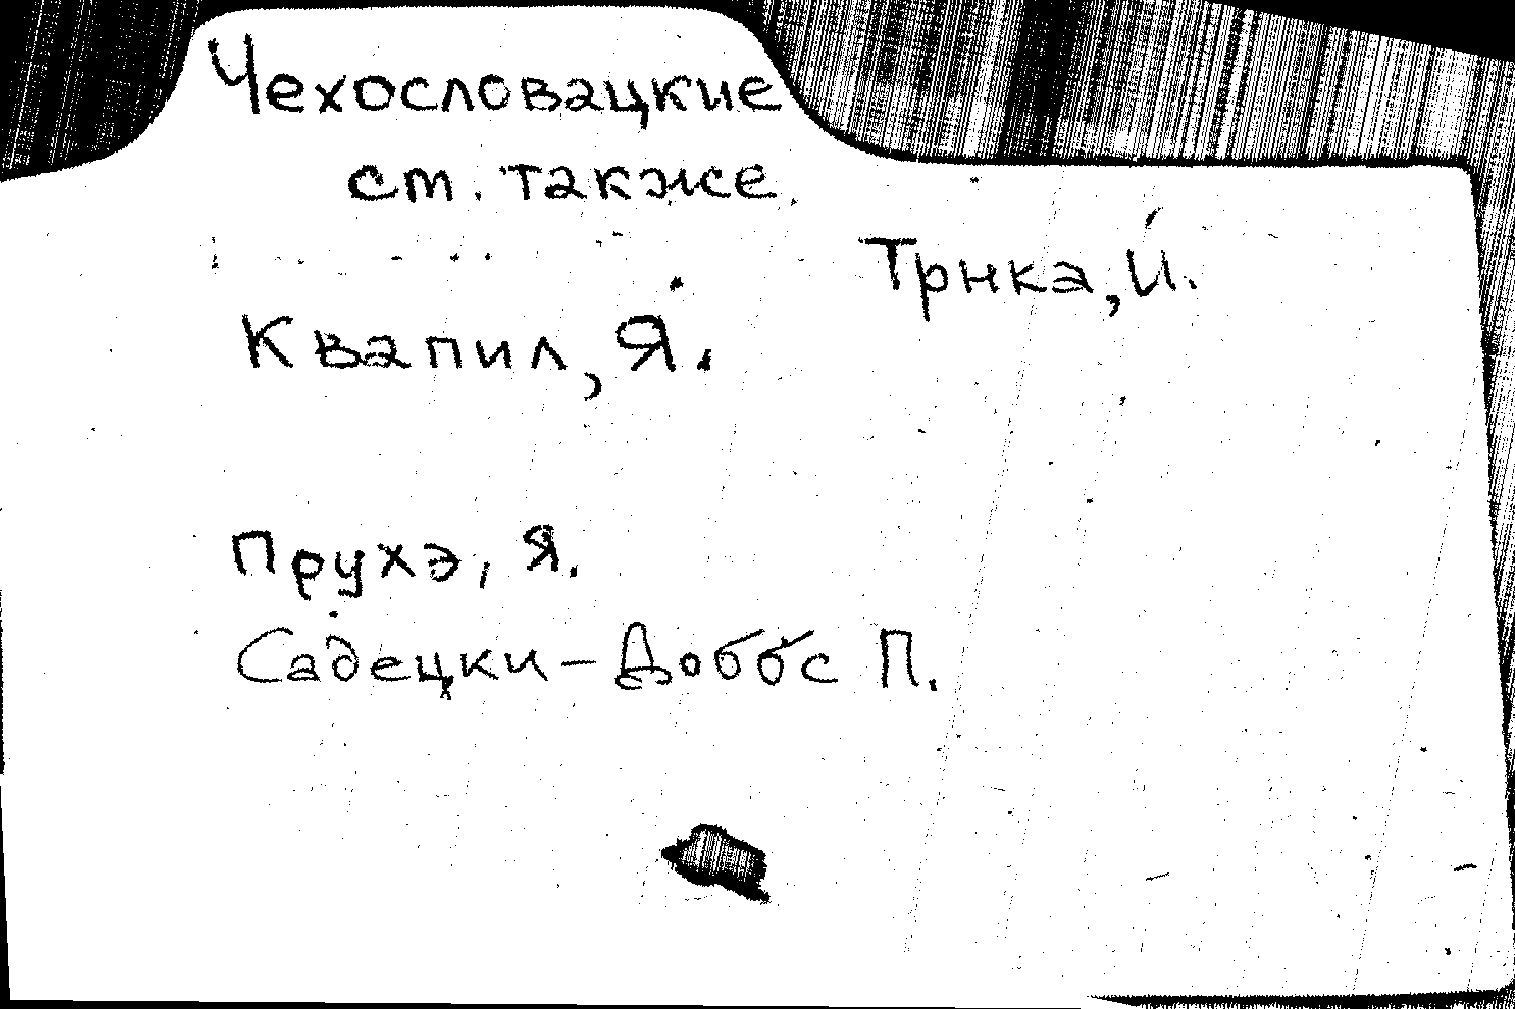 Чехословацкие
см. также
Трнка, Й.
Квапил, Я.
Пруха, Я.
Садецки-Доббс П.